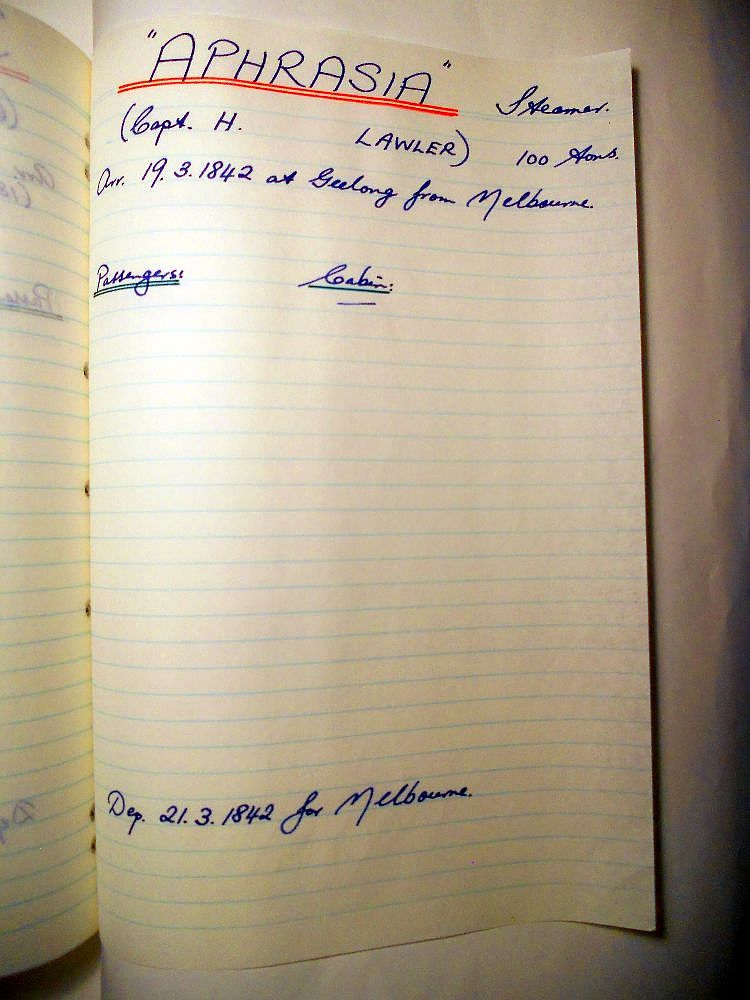 "APHRASIA" Steamer.
(Capt. H. LAWLER) 100 tons.
Arr. 19.3.1842 at Geelong from Melbourne.
Passengers: Cabin:
Dep. 21.3.1842 for Melbourne.